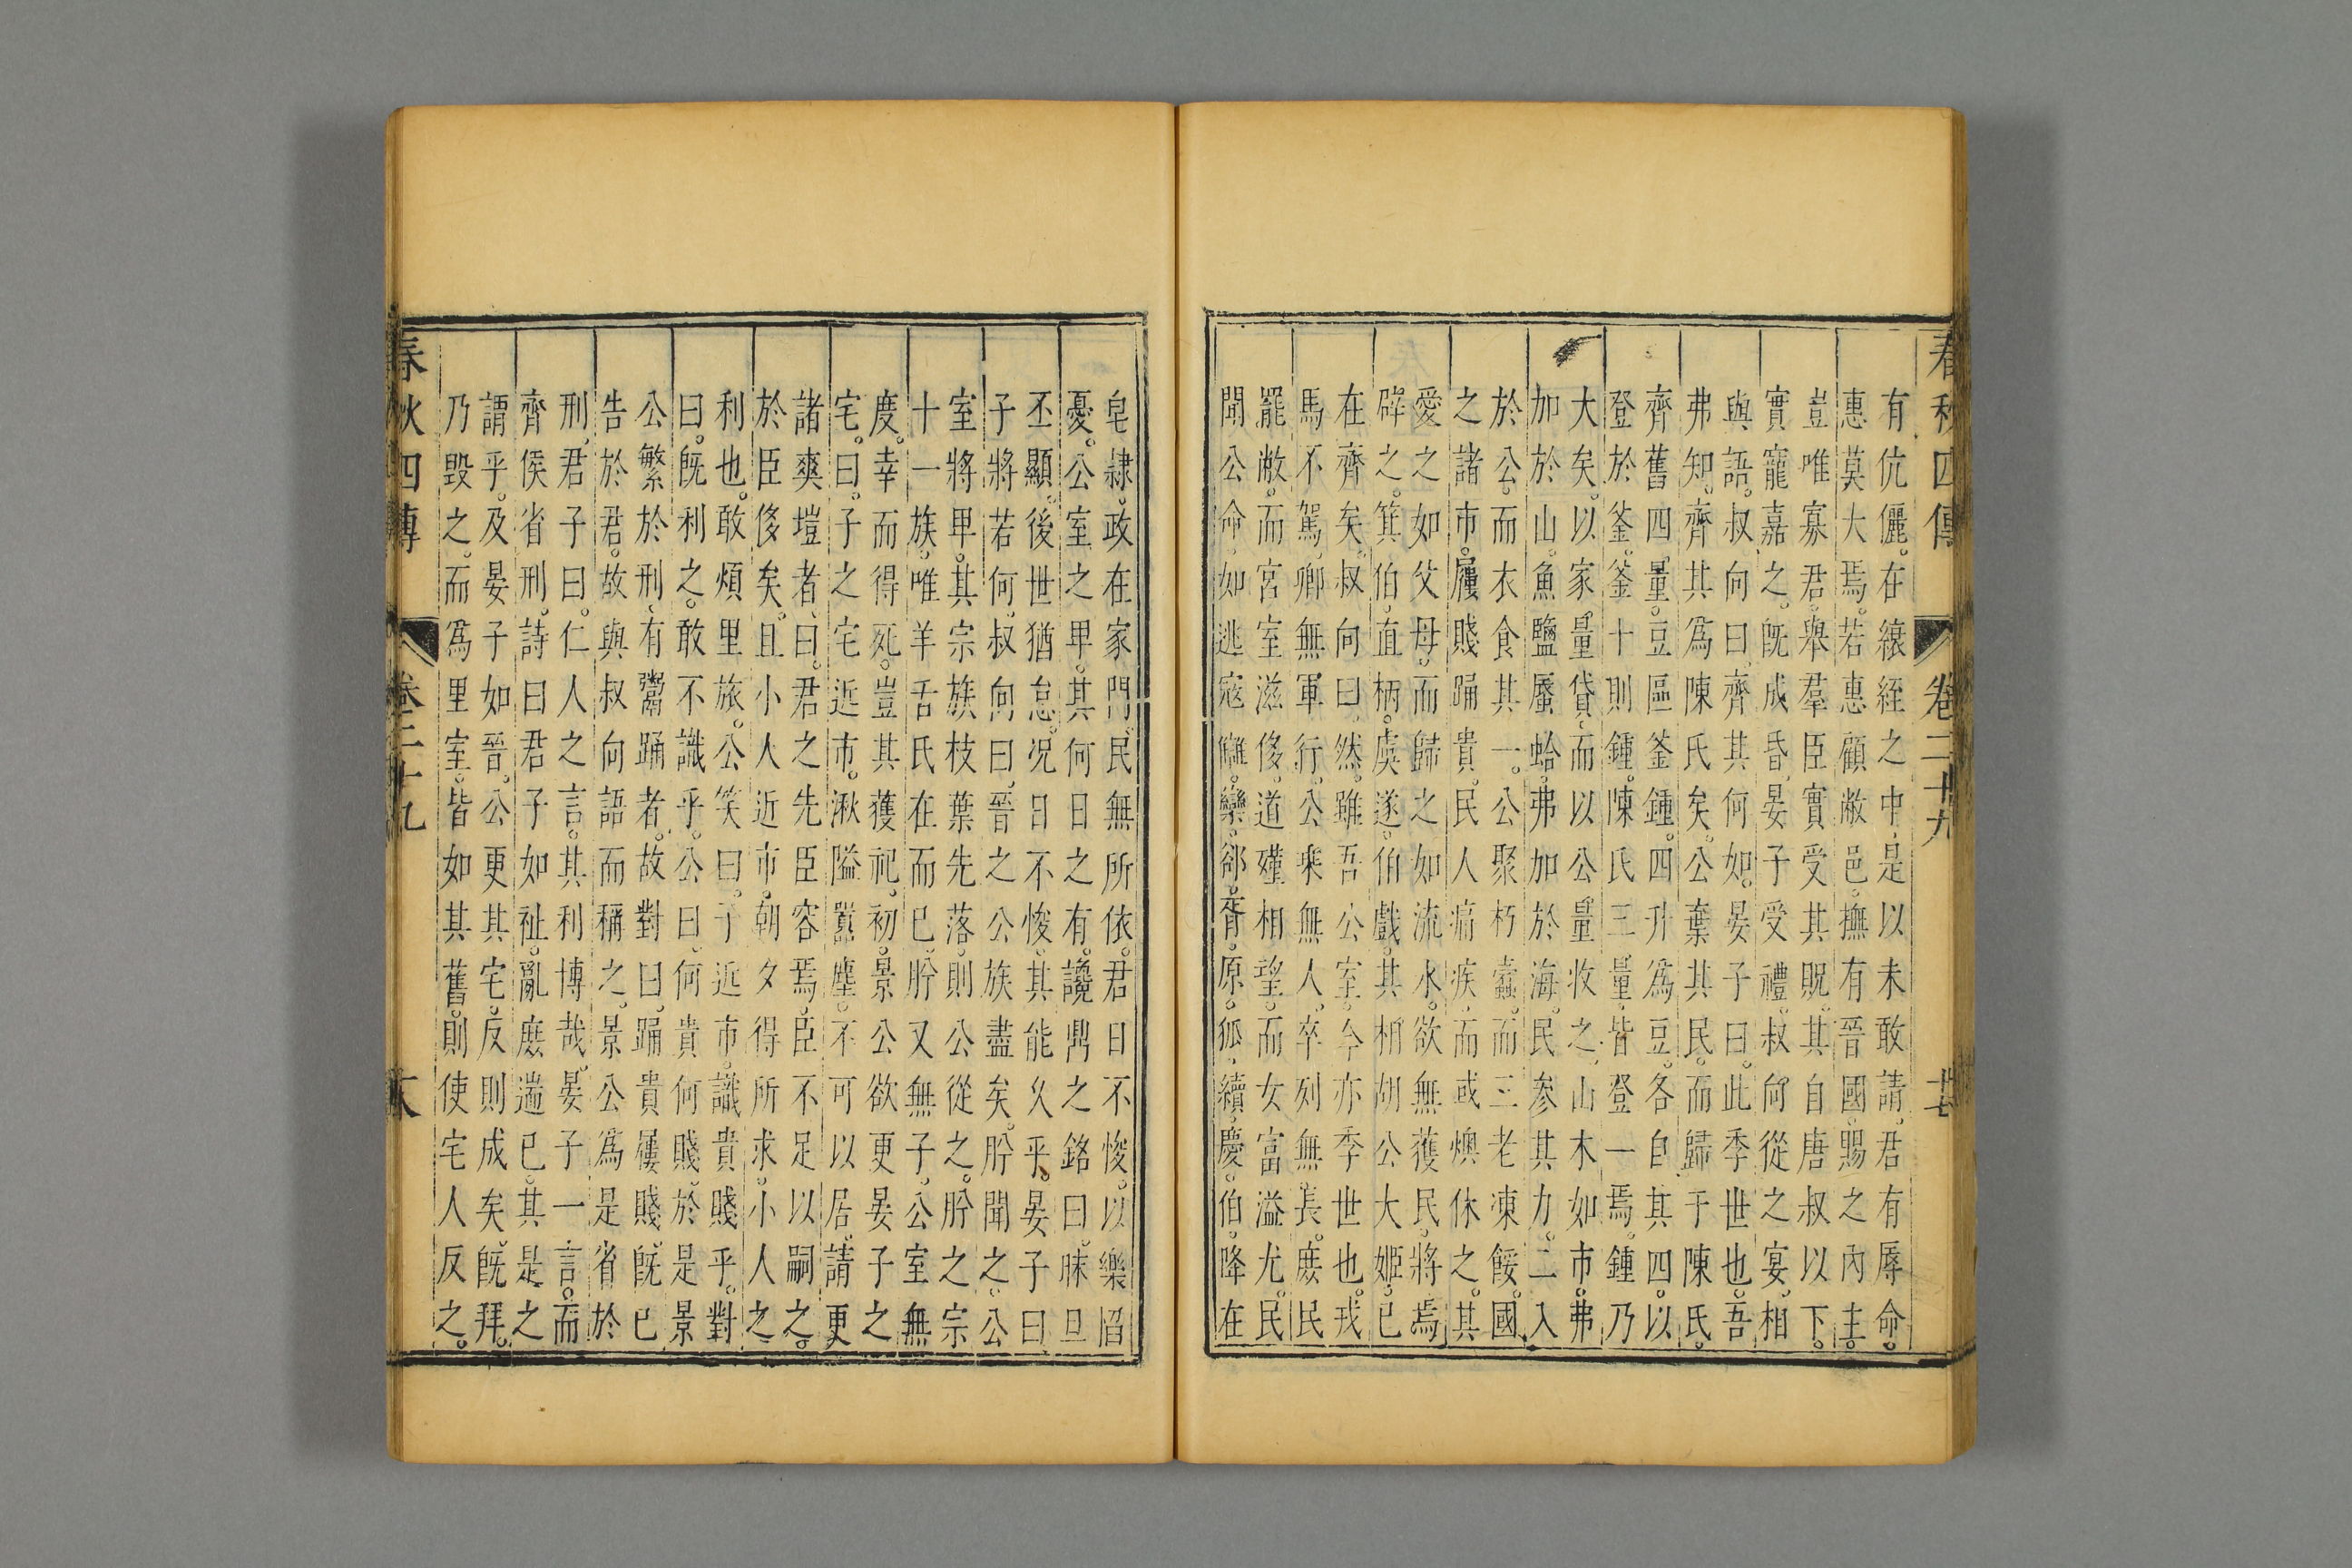 春秋四傳 卷二十九 十七
有伉儷。在縗絰之中。是以未敢請。君有辱命。
惠莫大焉。若惠顧敝邑。撫有晉國。賜之內主。
豈唯寡君。舉羣臣實受其貺。其自唐叔以下。
實寵嘉之。旣成昏。晏子受禮。叔向從之宴。相
與語。叔向曰。齊其何如。晏子曰。此季世也。吾
弗知。齊其爲陳氏矣。公棄其民。而歸于陳氏。
齊舊四量。豆區釜鍾。四升爲豆。各自其四。以
登於釜。釜十則鍾。陳氏三量。皆登一焉。鍾乃
大矣。以家量貸。而以公量收之。山木如市。弗
加於山。魚鹽蜃蛤。弗加於海。民參其力。二入
於公。而衣食其一。公聚朽蠹。而三老凍餒。國
之諸市。屨賤踊貴。民人痛疾。而或燠休之。其
愛之如父母。而歸之如流水。欲無獲民。將焉
辟之。箕伯。直柄。虞遂。伯戲。其相胡公大姬。已
在齊矣。叔向曰。然。雖吾公室。今亦季世也。戎
馬不駕。卿無軍行。公乘無人。卒列無長。庶民
罷敝。而宮室滋侈。道殣相望。而女富溢尤。民
聞公命。如逃寇讎。欒。郤。胥。原。狐。續。慶。伯。降在
皁隸。政在家門。民無所依。君日不悛。以樂慆
憂。公室之卑。其何日之有。讒鼎之銘曰。昧旦
丕顯。後世猶怠。况日不悛。其能久乎。晏子曰
子將若何。叔向曰。晉之公族盡矣。肸聞之。公
室將卑。其宗族枝葉先落。則公從之。肸之宗
十一族。唯羊舌氏在而已。肸又無子。公室無
度。幸而得死。豈其獲祀。初。景公欲更晏子之
宅。曰。子之宅近市。湫隘嚻塵。不可以居。請更
諸爽塏者。曰。君之先臣容焉。臣不足以嗣之。
於臣侈矣。且小人近市。朝夕得所求。小人之
利也。敢煩里旅。公笑曰。子近市。識貴賤乎。對
曰。旣利之。敢不識乎。公曰。何貴何賤。於是景
公繁於刑。有鬻踊者。故對曰。踊貴屨賤。旣已
告於君。故與叔向語而稱之。景公爲是省於
刑。君子曰。仁人之言。其利博哉。晏子一言。而
齊侯省刑。詩曰君子如祉。亂庶遄已。其是之
謂乎。及晏子如晉。公更其宅。反則成矣。旣拜。
乃毀之。而爲里室。皆如其舊。則使宅人反之。
春秋四傳 卷二十九